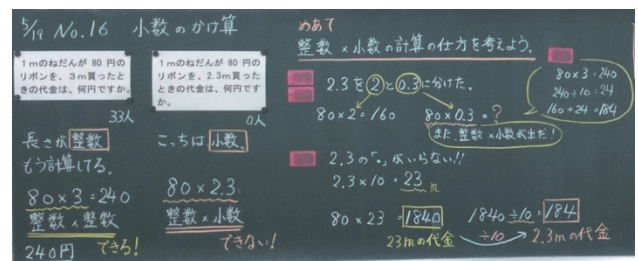 5/19 No.16 小数のかけ算
1mのねだんが 80 円の
リボンを、3m買ったと
きの代金は、何円ですか。
33人
長さが整数
もう計算してる。
80×3=240
整数×整数
240円 できる!
1mのねだんが 80 円の
リボンを、2.3m買った
ときの代金は、何円です
か。
0人
こっちは小数。
80×2.3
整数×小数
できない!
めあて
整数×小数の計算の仕方を考えよう。
2.3を2と0.3に分けた。
80×2=160 80×0.3=?
また、整数×小数が出た!
80×3=240
240÷10=24
160+24=184
2.3の「.」がいらない!!
2.3×10=23m
80×23=1840 1840÷10=184
23mの代金 ÷10 2.3mの代金